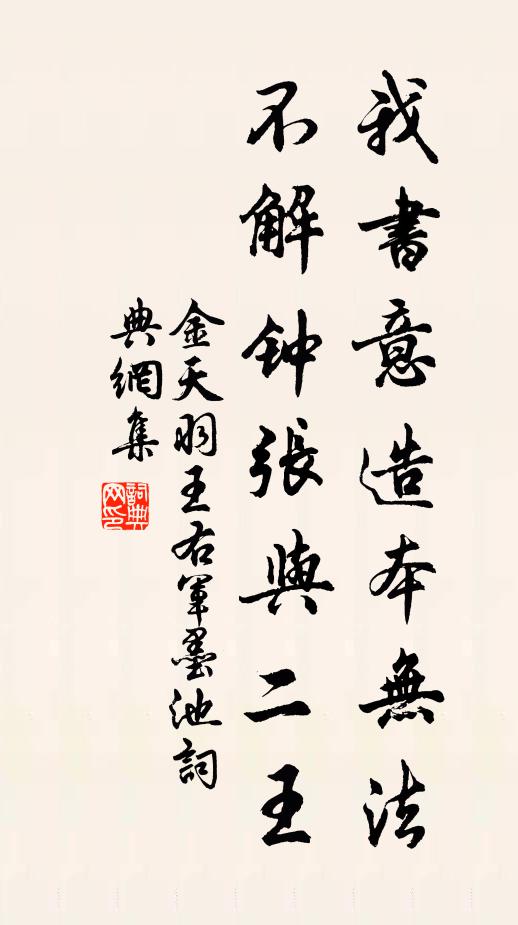 我書意造本無法
不解钟張與二王
金天羽王右軍墨池詞
典網集
詞典
网印